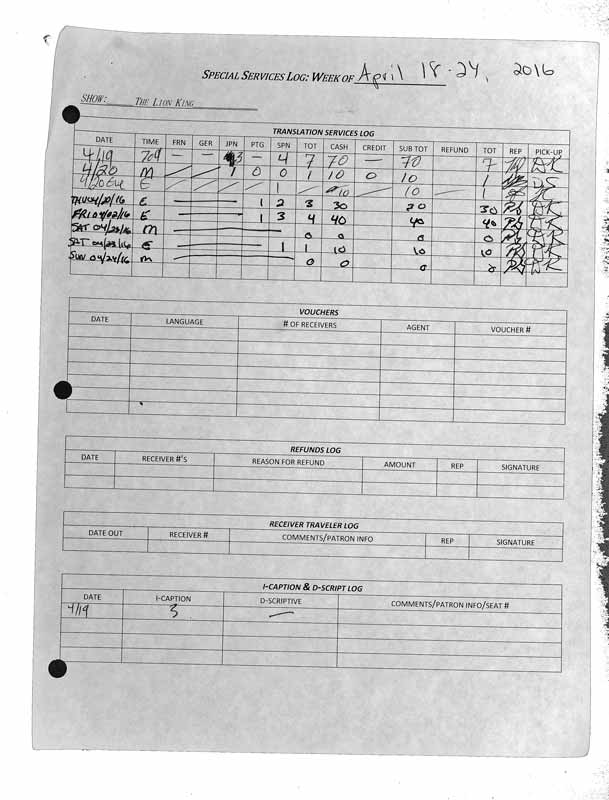 SPECIAL SERVICES LOG: WEEK OF April 18-24, 2016
SHOW: THE LION KING
TRANSLATION SERVICES LOG
DATE TIME FRN GER JPN PTG SPN TOT CASH CREDIT SUB TOT REFUND TOT REP PICK-UP
4/19 — — 3 — 4 7 70 — 70 7 DK
4/20 M 1 0 0 1 10 0 10 1
4/20 Eve E 1 10 10 1
THU 04/20/16 E 1 2 3 30 30 30 DK
FRI 04/02/16 E 1 3 4 40 40 40 DK
SAT 04/23/16 M 0 0 0 0 DK
SAT 04/23/16 E 1 1 10 10 10 DK
SUN 04/24/16 M 0 0 0 0 DK
VOUCHERS
DATE LANGUAGE # OF RECEIVERS AGENT VOUCHER #
REFUNDS LOG
DATE RECEIVER #'S REASON FOR REFUND AMOUNT REP SIGNATURE
RECEIVER TRAVELER LOG
DATE OUT RECEIVER # COMMENTS/PATRON INFO REP SIGNATURE
I-CAPTION & D-SCRIPT LOG
DATE I-CAPTION D-SCRIPTIVE COMMENTS/PATRON INFO/SEAT #
4/19 3 —